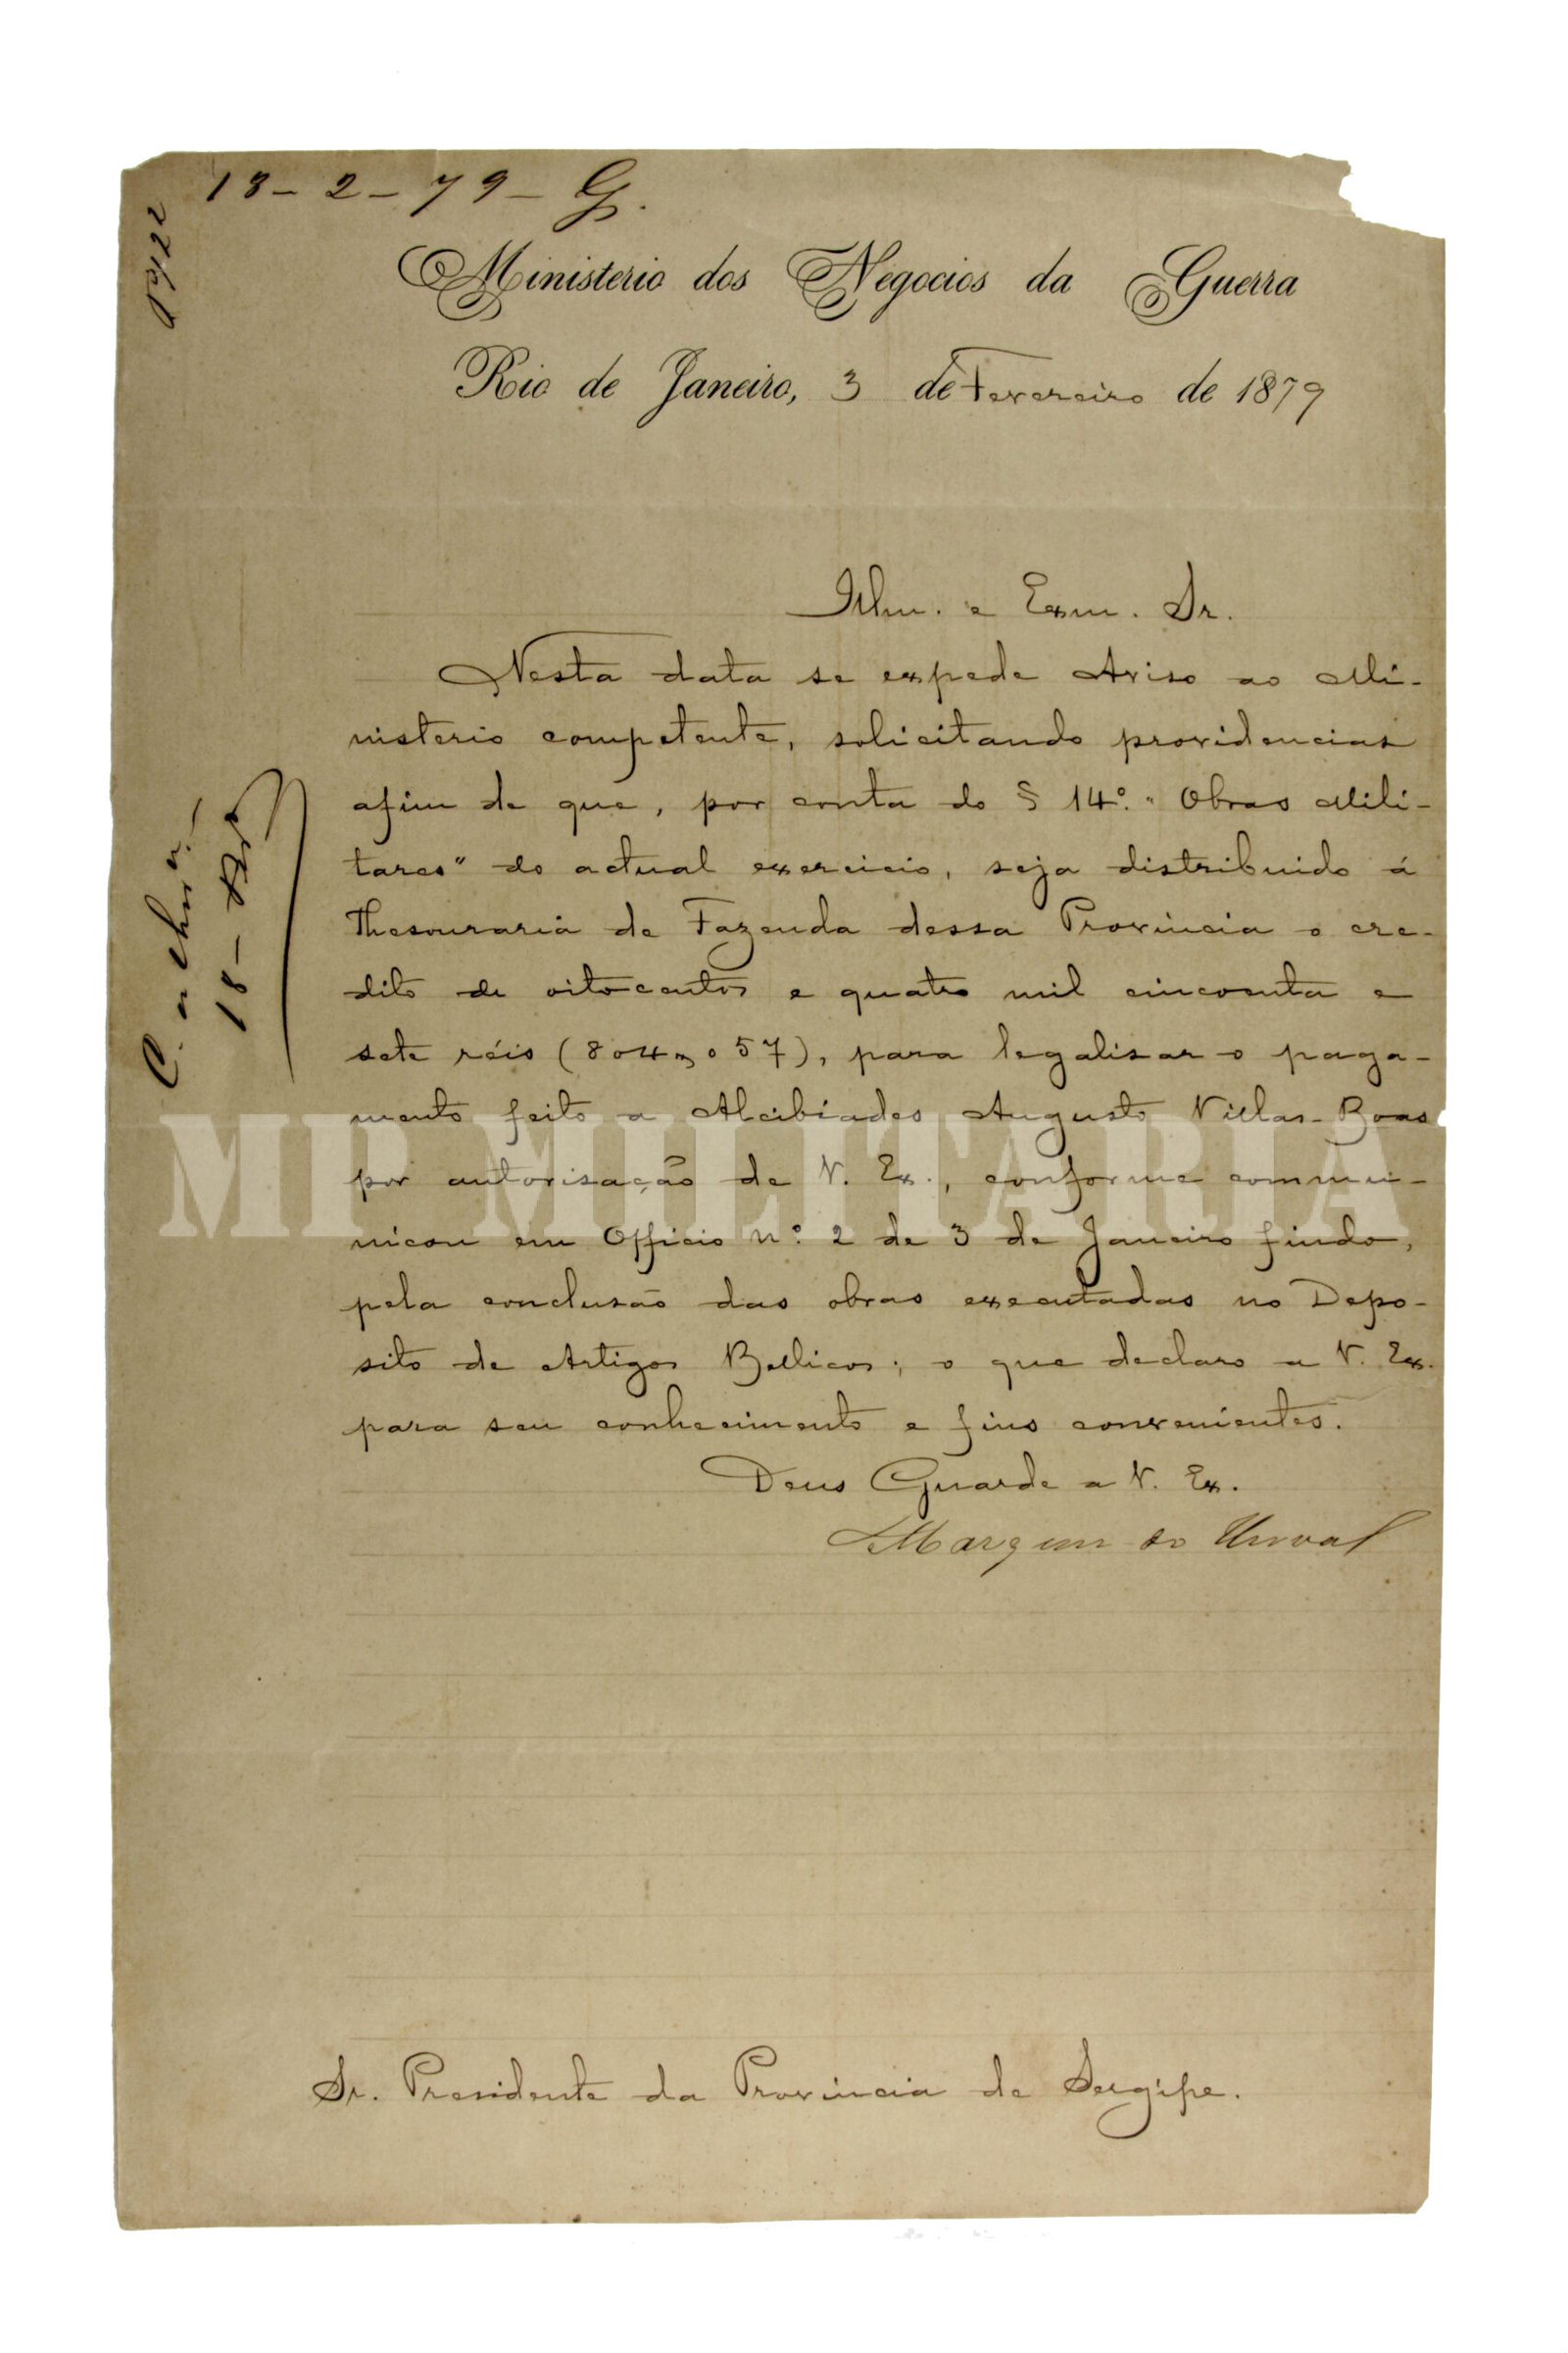 13-2-79-G.
Ministerio dos Negocios da Guerra
Rio de Janeiro, 3 de Fevereiro de 1879
Illm. e Exm. Sr.
Nesta data se expede Aviso ao Mi-
nisterio competente, solicitando providencias
afim de que, por conta do § 14º. "Obras Mili-
tares" do actual exercicio, seja distribuido á
Thesouraria de Fazenda dessa Provincia o cre-
dito de oitocentos e quatro mil cincoenta e
sete réis (804$057), para legalisar o paga-
mento feito a Alcibiades Augusto Villas-Boas
por autorisação de V. Ex., conforme commu-
nicou em Officio nº. 2 de 3 de Janeiro findo,
pela conclusão das obras executadas no Depo-
sito de Artigos Bellicos; o que declaro a V. Ex.
para seu conhecimento e fins convenientes.
Deus Guarde a V. Ex.
Marquez do Herval
Sr. Presidente da Provincia de Sergipe.
18-
MP MILITARIA